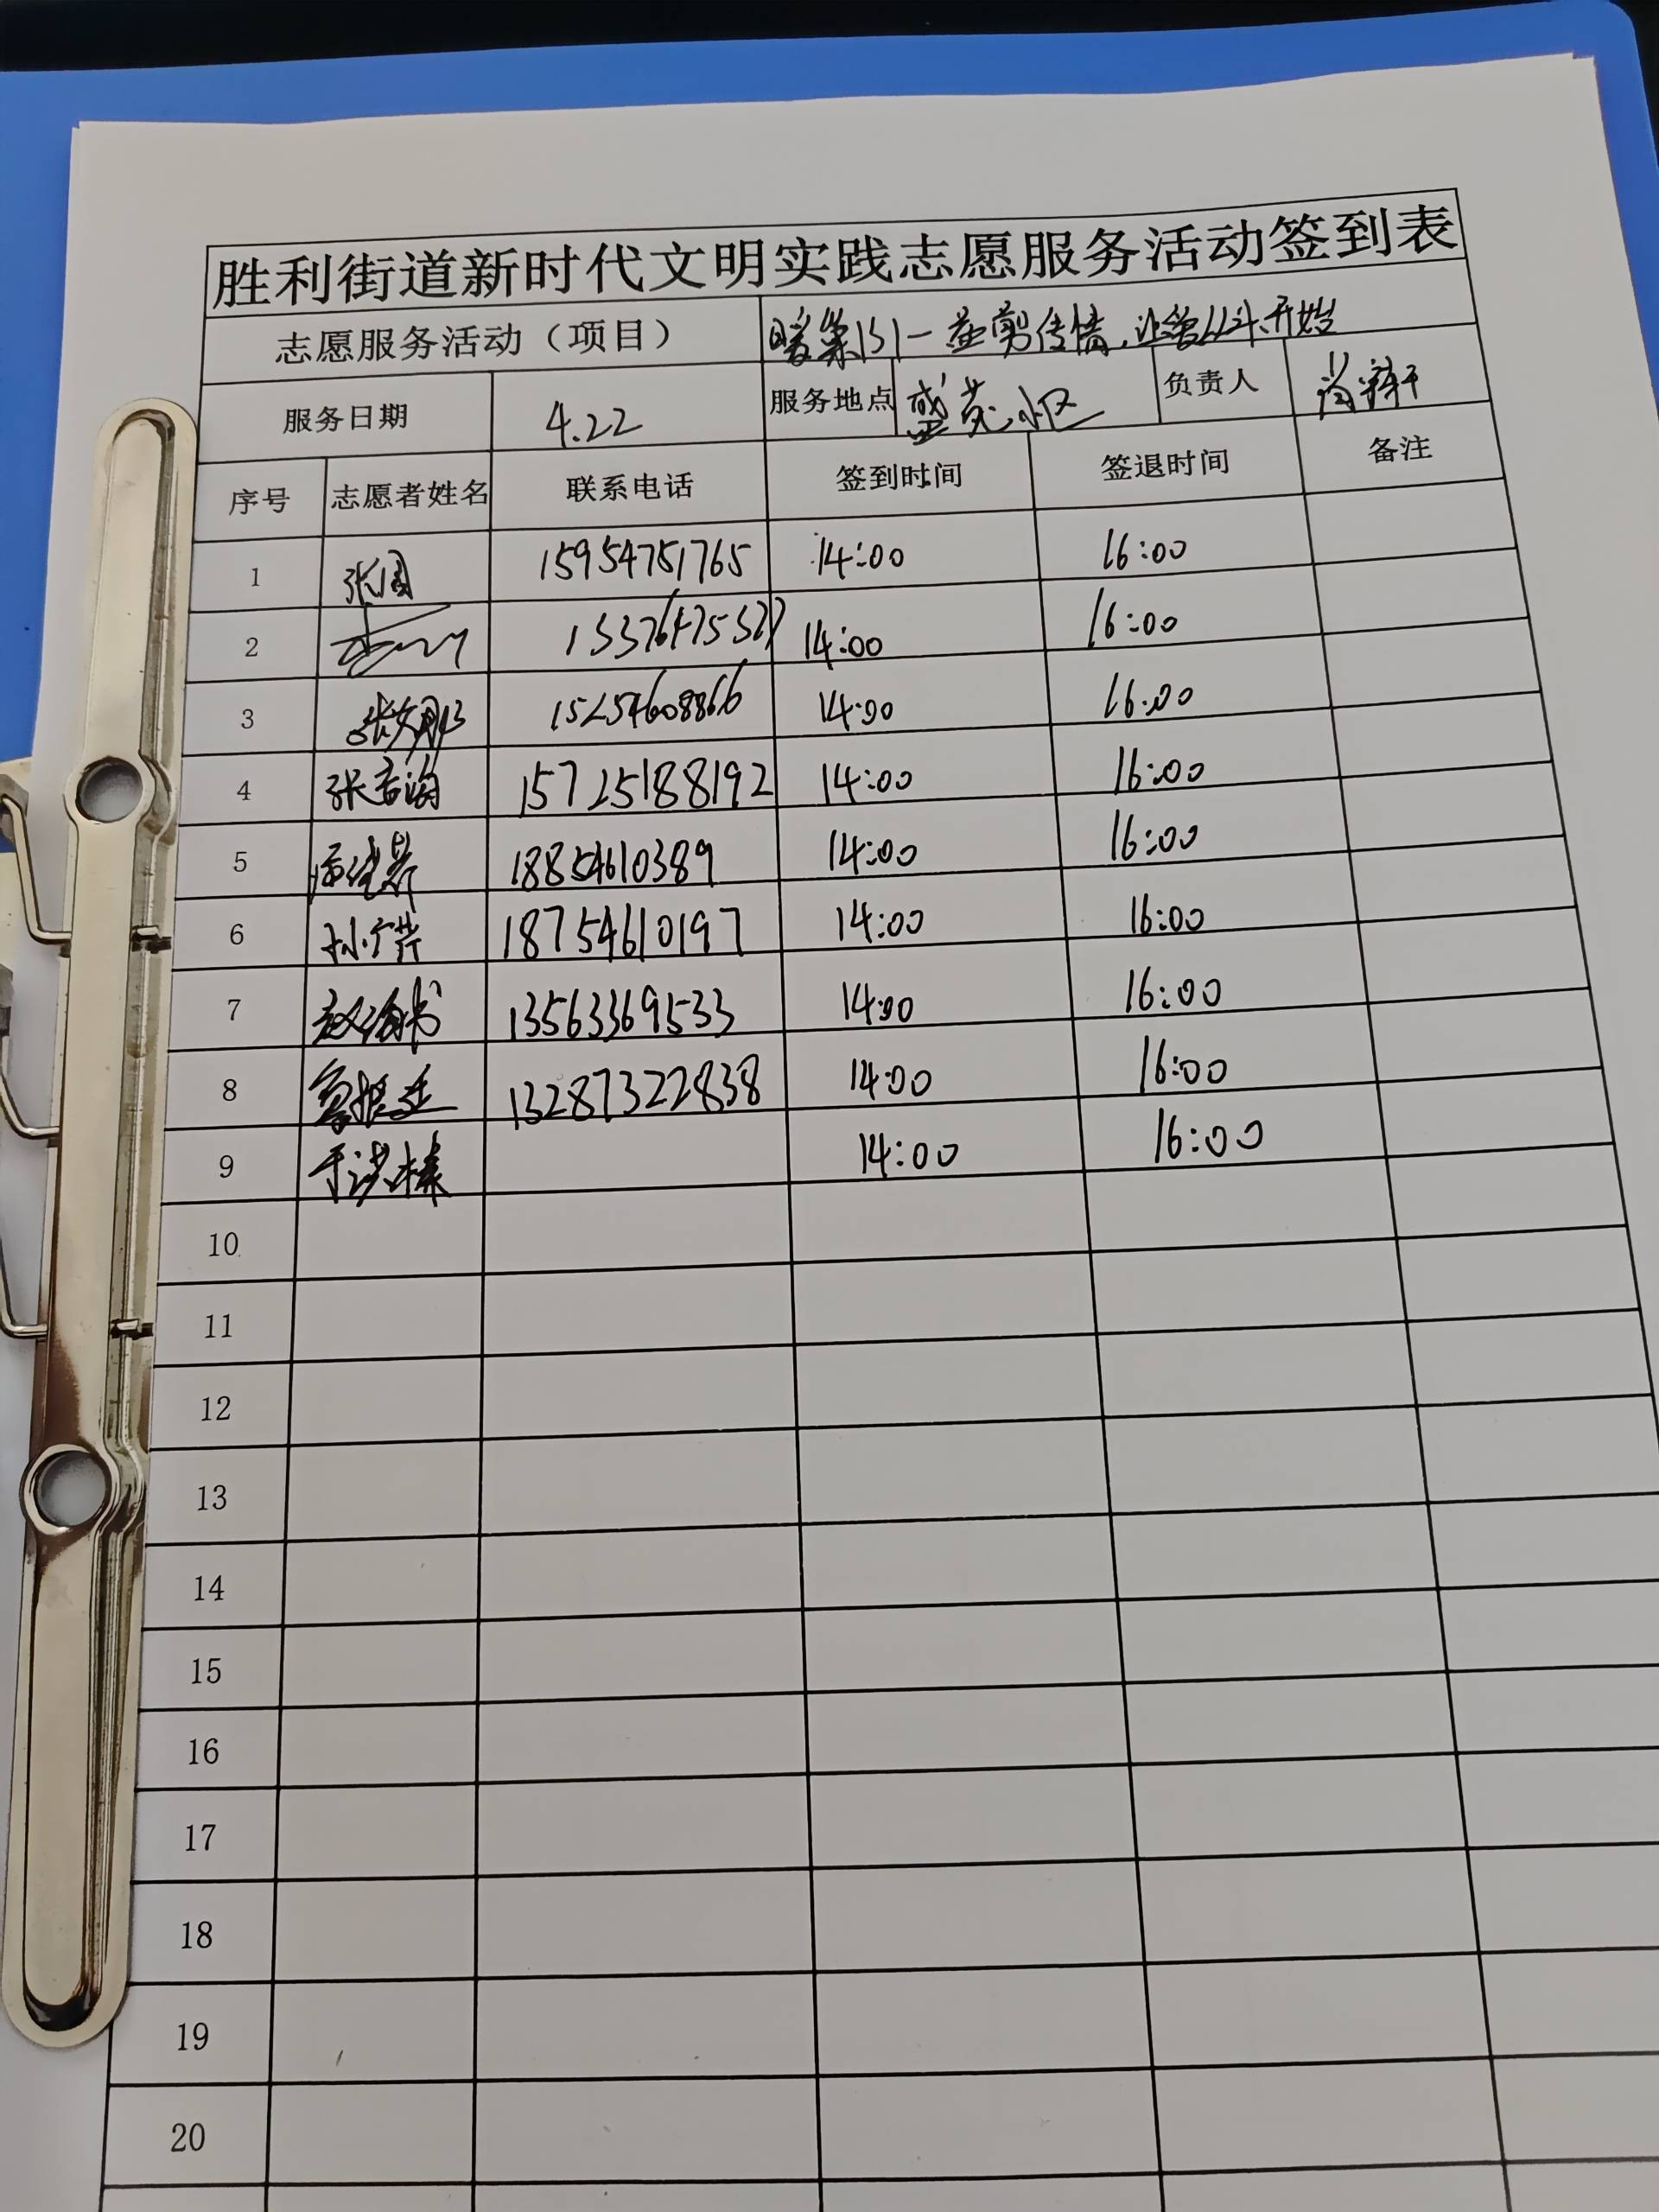 胜利街道新时代文明实践志愿服务活动签到表
志愿服务活动（项目） 益剪传情,让爱从头开始
服务日期 4.22 服务地点 盛苑小区 负责人
序号 志愿者姓名 联系电话 签到时间 签退时间 备注
1 15954751765 14:00 16:00
2 14:00 16:00
3 15254608866 14:00 16:00
4 15725188192 14:00 16:00
5 18854610389 14:00 16:00
6 孙广芹 18754610197 14:00 16:00
7 13563369533 14:00 16:00
8 13287322838 14:00 16:00
9 于洪彬 14:00 16:00
10
11
12
13
14
15
16
17
18
19
20